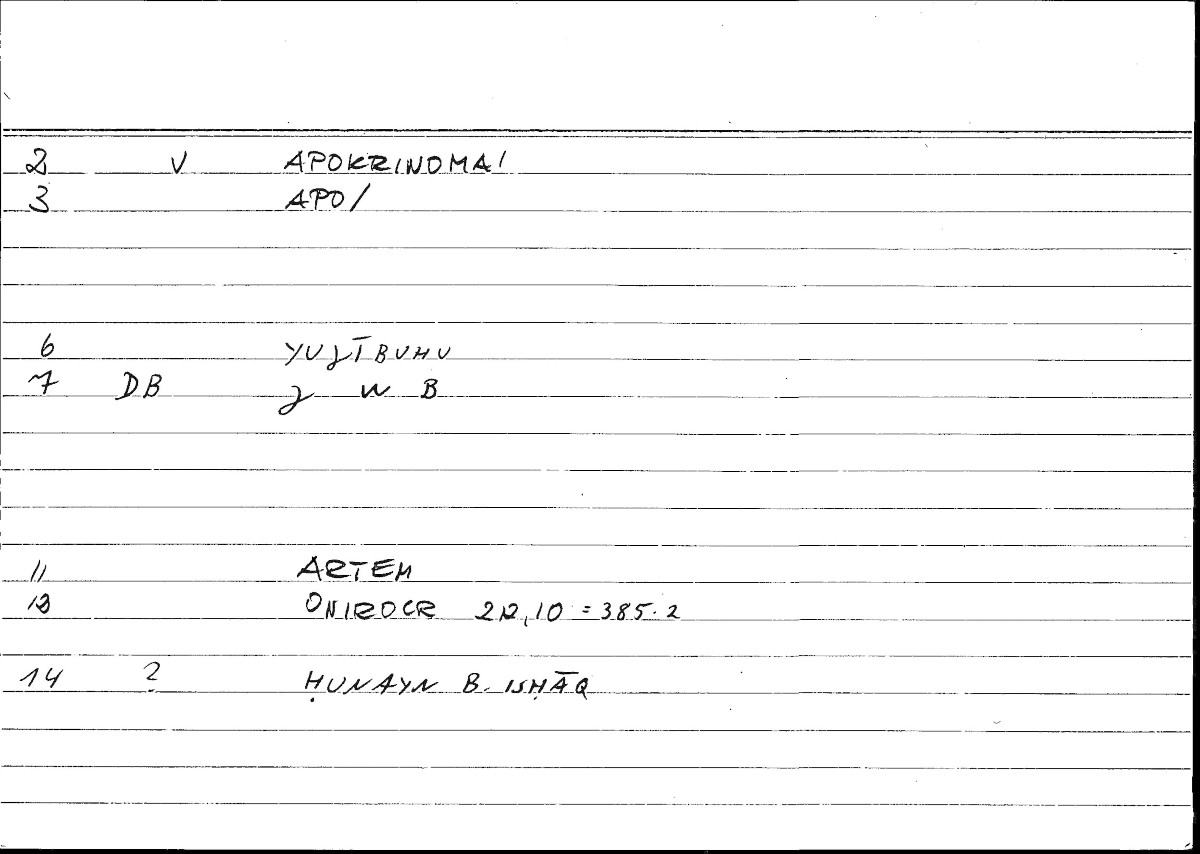 2 V APOKRINOMAI
3 APO/
6 YUJĪBUHU
7 DB J W B
11 ARTEM
12 ONIROCR 212,10 = 385.2
14 ? ḤUNAYN B. ISḤĀQ